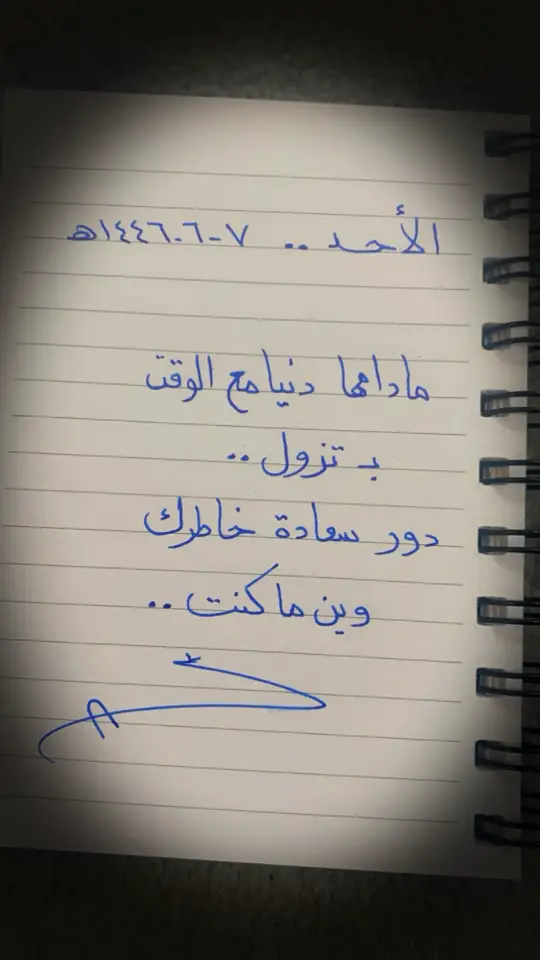 الأحد .. ٧-٦-١٤٤٦هـ
مادامها دنيا مع الوقت
بـ تزول ..
دور سعادة خاطرك
وين ما كنت ..